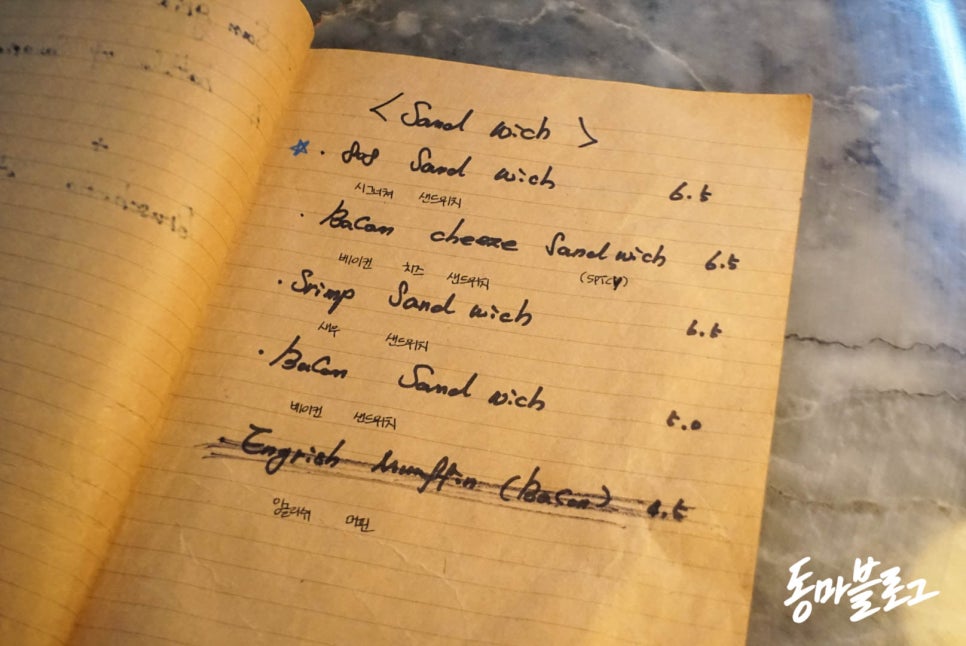 < Sand wich >
☆ · 808 Sand wich 6.5
시그니쳐 샌드위치
· Bacon cheeze Sandwich 6.5
베이컨 치즈 샌드위치 (SPICY)
· Srimp Sand wich 6.5
새우 샌드위치
· Bacon Sand wich 5.0
베이컨 샌드위치
· Engrish Muffin (Bacon) 4.5
잉글리쉬 머핀
동마블로그